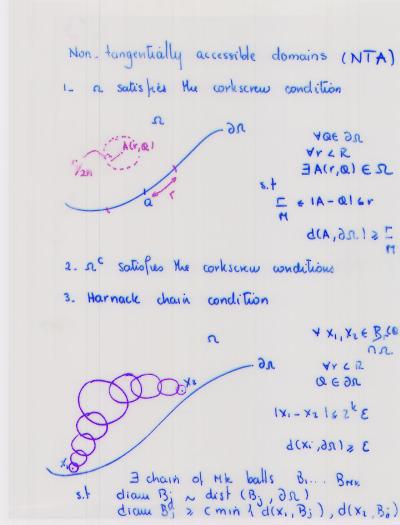 Non-tangentially accessible domains (NTA)
1- Ω satisfies the corkscrew condition
Ω
∂Ω
A(r,Q)
r/2M
Q
r
∀Q∈∂Ω
∀r<R
∃A(r,Q)∈Ω
s.t
r/M ≤ |A-Q| ≤ r
d(A,∂Ω) ≥ r/M
2. Ωᶜ satisfies the corkscrew conditions
3. Harnack chain condition
Ω
∂Ω
X₁
X₂
∀ X₁,X₂ ∈
∩Ω
∀r<R
Q∈∂Ω
|X₁-X₂| ≤ 2ᵏ ε
d(Xi,∂Ω) ≥ ε
∃ chain of Mk balls B₁... B_Mk
s.t diam Bj ~ dist (Bj, ∂Ω)
diam Bj ≥ c min { d(X₁,Bj), d(X₂,Bj)